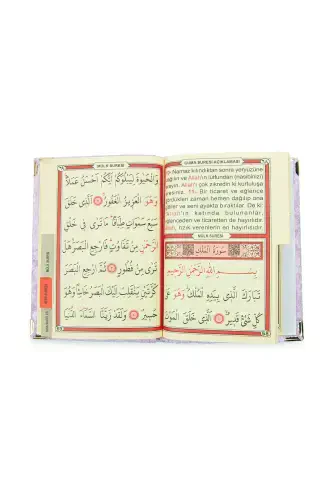 CUMA SURESİ AÇIKLAMASI
Namaz kılındıktan sonra yeryüzüne
dağılın ve Allah'ın lütfundan (nasibinizi)
Allah'ı çok zikredin ki kurtuluşa
Bir ticaret ve eğlence
gördükleri zaman hemen dağılıp ona
giderler ve seni ayakta bıraktılar. De ki:
Allah'ın katında bulunanlar,
eğlenceden ve ticaretten de hayırlıdır.
Allah, rızık verenlerin en hayırlısıdır.
MÜLK SURESİ
سُورَةُ الْمُلْكِ
بِسْمِ اللهِ الرَّحْمٰنِ الرَّحِيمِ
تَبَارَكَ الَّذِي بِيَدِهِ الْمُلْكُ وَهُوَ عَلٰى
كُلِّ شَيْءٍ قَدِيرٌ الَّذِي خَلَقَ الْمَوْتَ
MÜLK SURESİ
وَالْحَيٰوةَ لِيَبْلُوَكُمْ اَيُّكُمْ اَحْسَنُ عَمَلاً
وَهُوَ الْعَزِيزُ الْغَفُورُ الَّذِي خَلَقَ
سَبْعَ سَمٰوَاتٍ طِبَاقًا مَا تَرٰى فِي خَلْقِ
الرَّحْمٰنِ مِنْ تَفَاوُتٍ فَارْجِعِ الْبَصَرَ هَلْ
تَرٰى مِنْ فُطُورٍ ثُمَّ ارْجِعِ الْبَصَرَ
كَرَّتَيْنِ يَنْقَلِبْ اِلَيْكَ الْبَصَرُ خَاسِئًا وَهُوَ
حَسِيرٌ وَلَقَدْ زَيَّنَّا السَّمَاءَ الدُّنْيَا